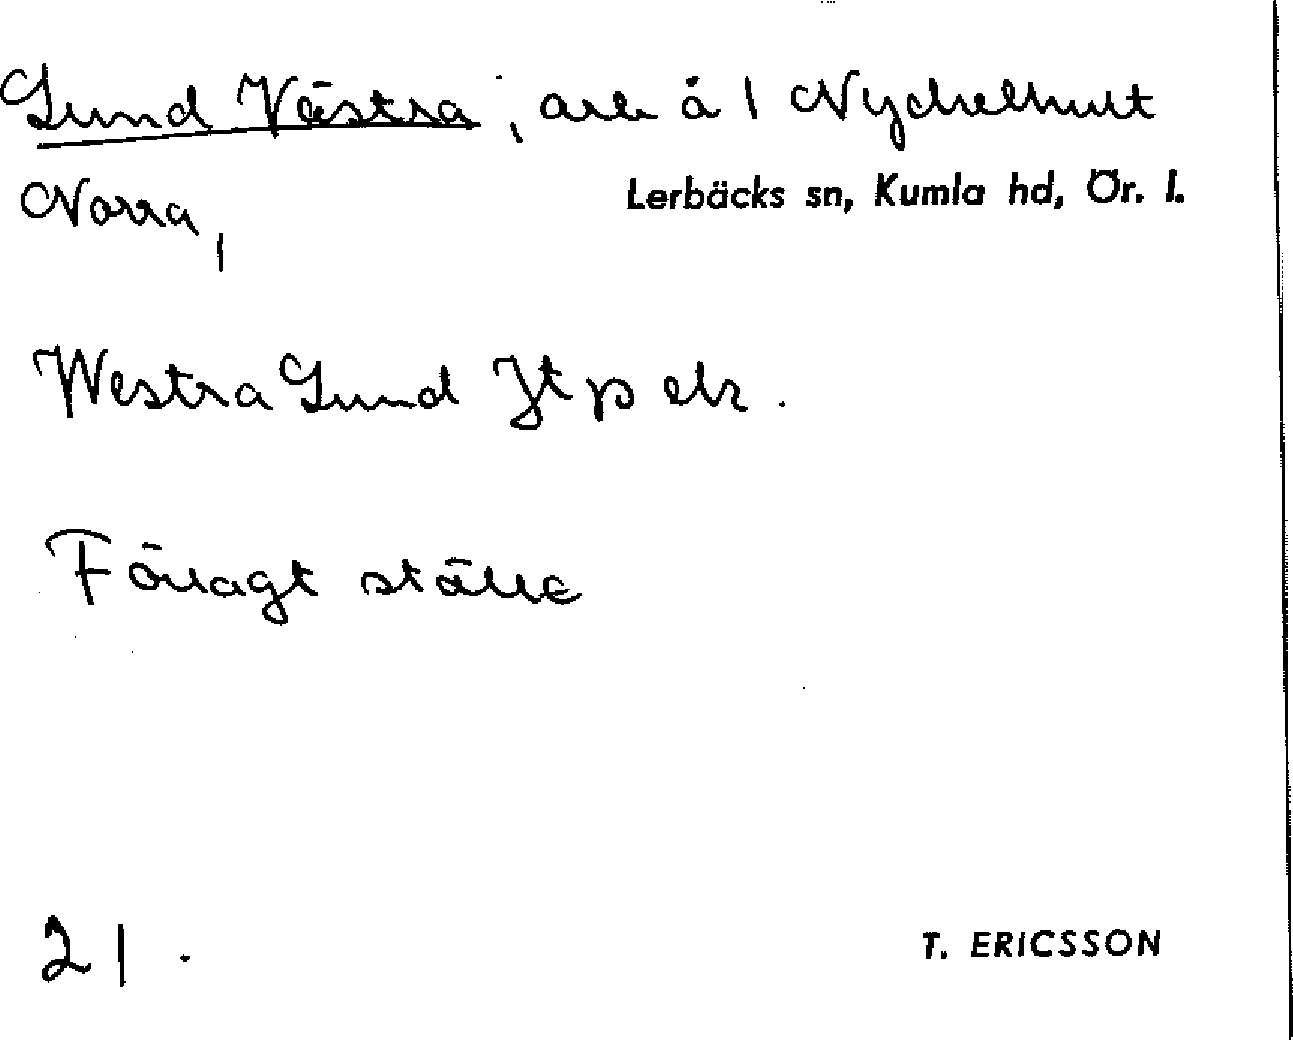 Lund Västra, arr å 1 Nyckelhult
Norra, Lerbäcks sn, Kumla hd, Ör. l.
Westra Lund Jt p
Förlagt ställe
21.
T. ERICSSON